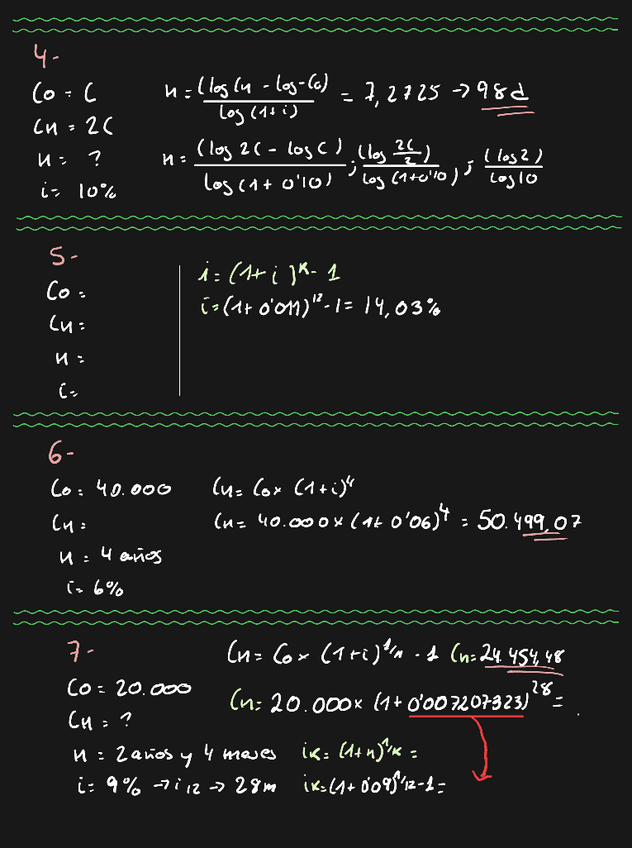 4-
Co = C
n = (log Cn - log Co) / log (1+i) = 7,2725 → 98d
Cn = 2C
n = ?
n = (log 2C - log C) / log (1+0'10) ; (log 2C/2) / log (1+0'10) ; (log 2) / log 10
i = 10%
5-
i = (1+i)^k - 1
Co =
i = (1+0'011)^12 - 1 = 14,03%
Cn =
n =
i =
6-
Co = 40.000
Cn = Co x (1+i)^4
Cn =
Cn = 40.000 x (1+0'06)^4 = 50.499,07
n = 4 años
i = 6%
7-
Cn = Co x (1+i)^1/n - 1 Cn = 24.454,48
Co = 20.000
Cn = 20.000 x (1+0'007207323)^28 =
Cn = ?
n = 2 años y 4 meses
ik = (1+n)^1/k =
i = 9% → i12 → 28m
ik = (1+0'09)^1/12 - 1 =